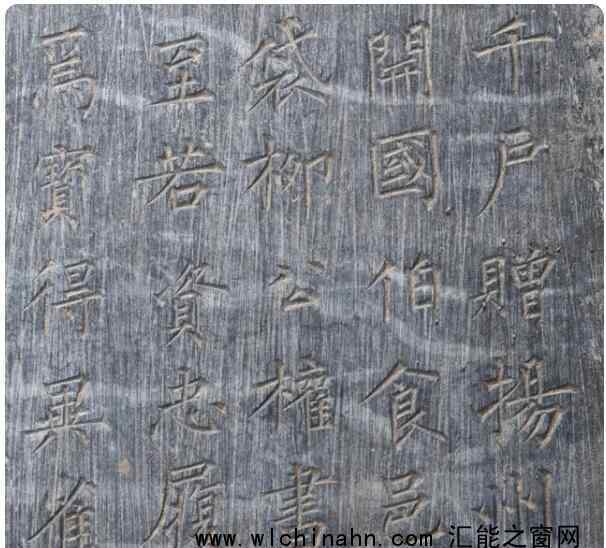 千戶贈揚州
開國伯食邑
袋柳公權書
至若資忠履
爲寶得異雀
www.wlchinahn.com 汇能之窗网